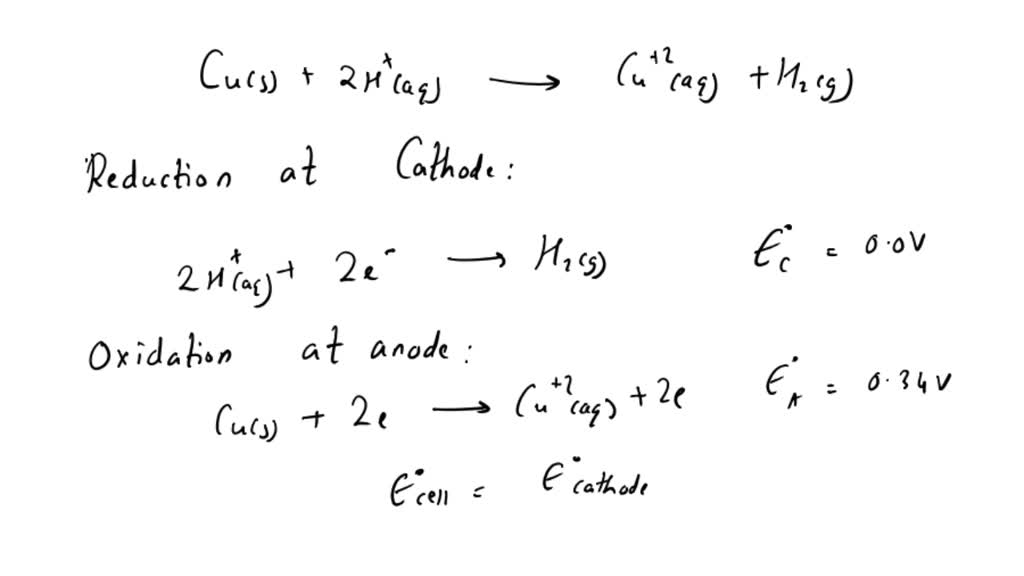 Cu(s) + 2H⁺(aq) → Cu⁺²(aq) + H₂(g)
Reduction at Cathode:
2H⁺(aq) + 2e⁻ → H₂(g) E°c = 0.0V
Oxidation at anode:
Cu(s) + 2e → Cu⁺²(aq) + 2e E°A = 0.34V
E°cell = E°cathode